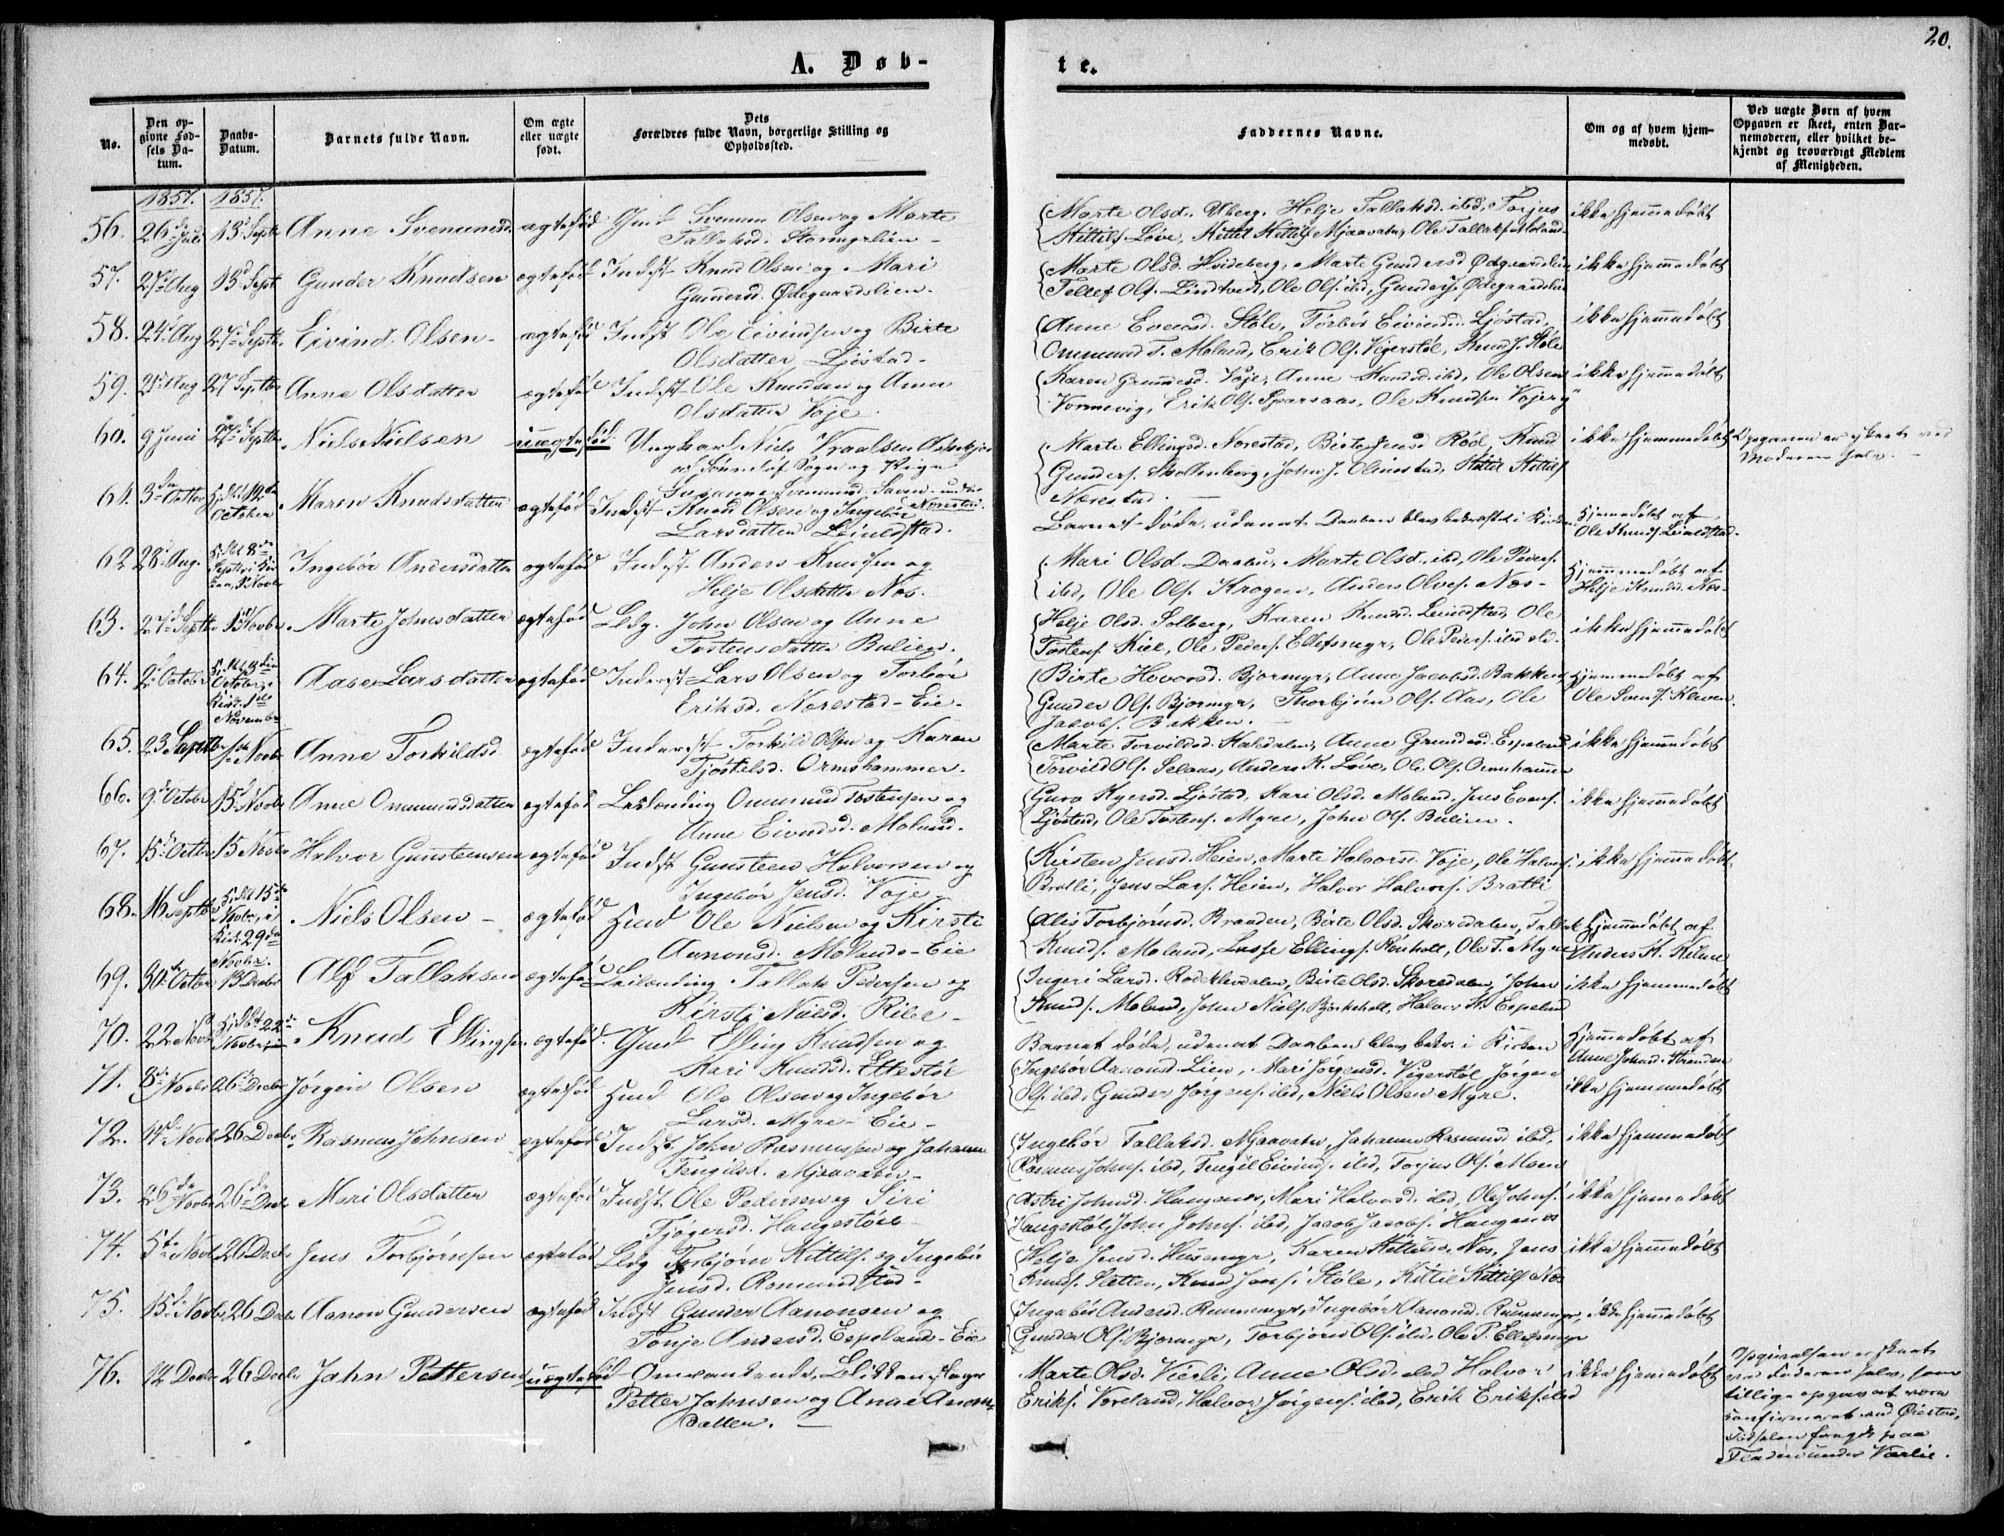 20.
A. Døb-
te.
No.
Den op-
givne Fød-
sels Da-
tum.
Daabs-
Datum.
Barnets fulde Navn.
Om ægte
eller uægte
født.
Dets
Forældres fulde Navn, borgerlige Stilling og
Opholdssted.
Faddernes Navne.
Om og af hvem hjem-
medøbt.
Ved uægte Børn af hvem
Opgaven er skeet, enten Bar-
nemoderen, eller hvilket be-
kjendt og troværdigt Medlem
af Menigheden.
1857. 1857.
56. 26 Juli 13 Septr Anne Svenumsd. ægtefød Gmd Svenum Olsen og Marte
Tallaksd. Stormyrlien
Marte Olsd. Uberg, Helje Tallaksd. ibd, Torjus
Kittilsf. Løve, Kittil Kittilsf Mjaavatn, Ole Tallaksf Moland
ikke hjemmedøbt
57. 27 Aug 13 Sept Gunder Knudsen ægtefød Indst Knud Olsen og Mari
Gundersd. Ødegaardslien.
Marte Olsd. Hvideberg, Marte Gundersd Ødegaardslien
Tellef Olf. Lindtveit, Ole Olf. ibd, Gunder J. Ødegaardslien
ikke hjemmedøbt
58. 24 Aug 27 Septbr Eivind Olsen ægtefød Indst Ole Eivindsen og Birte
Olsdatter Ljøstad
Anne Evensd. Støle, Torbør Eivindsd. Ljøstad,
Ommund T. Moland, Erik Olf. Vegerstøl, Knud J. Støle
ikke hjemmedøbt
59. 21 Aug 27 Septbr Anne Olsdatter ægtefød Indst Ole Knudsen og Anne
Olsdatter Voje.
Karen Gunnesd. Voje, Anne ibd, Ole Olsen
Vormevig, Erik Olf. Sparsaas, Ole Knudsen Voje
ikke hjemmedøbt
60. 9 Juni 27 Septbr Niels Nielsen uægtefød Ungkarl Niels Vraalsen
af Sønneløf Sogn og Pige
Marte Ellingsd. Norestad, Birte Jensd Röd, Knud
Gunders. Skollenborg, John J. Olmestad, Kittil Kittilsf
Nærestad.
ikke hjemmedøbt
Opgaven er skeet ved
Moderen selv.
61. 3 Octbr October Maren Knudsdatter ægtefød Indst Knud Olsen og Ingebør
Larsdatter Leivelstad.
Barnet døde, udenat Daaben blev bekræftet i Kirken
Hjemmedøbt af
Ole Knudsf. Leivelstad
62 28 Aug. Ingebør Andersdatter ægtefød Indst Anders Knudsen og
Helje Olsdatter Næs.
Mari Olsd. Marte Olsd. ibd, Ole Peders.
ibd, Ole Olf. Krogen, Anders Olves. Næs
Hjemmedøbt af
Helje Knudsd. Næs
63. 27 Septbr 1 Novbr Marte Johnsdatter ægtefød Ldg. John Olsen og Anne
Tostensdatter Bulien.
Helje Olsd. Solberg, Karen Knudsd. Leivelstad, Ole
Tostensf Kile, Ole Peders. Ellefsmyr, Ole Peders. ibd
ikke hjemmedøbt
64. 2 October Aase Larsdatter ægtefød Inderst Lars Olsen og Torbør
Eriksd. Norestad-Eie.
Birte Hovorsd. Bjormyr, Anne Jacobsd. Bakken
Gunder Olf. Bjormyr, Thorbjørn Olf. Aas, Ole
Jacobs. Bakken.
Hjemmedøbt af
Ole Svens. Kleven
65. 23 Septbr 1ste Novbr Anne Torkildsd. ægtefød Inderst Torkild Olsen og Karen
Tjostelsd. Ormshammer.
Marte Torkildsd. Anne Gundersd. Espeland
Torkild Olf. Selaas, Anders K. Løve, Ole Olf. Ormshammer
ikke hjemmedøbt
66. 9 Octbr 15 Novbr Anne Ommundsdatter ægtefød Leilending Ommund Tostensen og
Anne Eivindsd. Moland.
Guro Ljøstad, Kari Olsd. Moland, Jens Evens.
Ljøstad, Ole Tostens. Myre, John Olf. Bulien.
ikke hjemmedøbt
67. 15 Octbr 15 Novbr Halvor Gunsteensen ægtefød Indst Gunsteen Halvorsen og
Ingebør Jensd. Voje.
Kirsten Jensd. Heien, Marte Halvorsd. Voje, Ole Halvors.
Bratli, Jens Lars. Heien, Halvor Halvors. Bratli
ikke hjemmedøbt
68. 16 Septbr Niels Olsen ægtefød Hmd Ole Nielsen og Kirsti
Aanonsd. Molands-Eie
Alis Torbjørnsd. Braaden, Birte Olsd. Skoredalen, Tallak
Knuds. Moland, Lasse Ellings. Rønholt, Ole T. Myre
Hjemmedøbt af
Anders K. Kilene
69. 30 Octbr 13 Decbr Alf Tallaksen ægtefød Leilending Tallak Pedersen og
Kirsti Nielsd. Kile
Ingeri Larsd. Birte Olsd. Skoredalen, John
Knuds. Moland, John Niels. Bjørkholt, Halvor K. Espeland
ikke hjemmedøbt
70. 22 Novbr Knud Ellingsen ægtefød Gmd Elling Knudsen og
Mari Knudsd. Ettestøl
Barnet døde, udenat Daaben blev bekr. i Kirken
Hjemmedøbt af
Anne Johnsd. Stranden
71. 8 Novbr 26 Decbr Jørgen Olsen ægtefød Hmd Ole Olsen og Ingebør
Larsd. Myre-Eie
Ingebør Aanonsd. Lien, Mari Jørgensd. Vegerstøl, Jørgen
Olf. ibd, Gunder Jørgens. ibd, Niels Olsen Myre.
ikke hjemmedøbt
72. 14 Novbr 26 Decbr Rasmus Johnsen ægtefød Indst John Rasmussen og Johanne
Tengilsd. Mjaavatn
Ingebør Tallaksd. Mjaavatn, Johanne Rasmusd ibd,
Rasmus Johns. ibd, Tengil Eivinds. ibd, Torjus Olf. Moen
ikke hjemmedøbt
73. 26 Novbr 26 Decbr Mari Olsdatter ægtefød Indst Ole Pedersen og Siri
Tjøgersd. Haugestøl
Astri Johnsd. Haugenes, Mari Halvorsd. ibd, Ole Johns.
Haugestøl, John Johns. ibd, Jacob Jacobs. Haugenes
ikke hjemmedøbt
74. 5te Novbr 26 Decbr Jens Torbjørnsen ægtefød Ldg Torbjørn Kittils. og Ingebør
Jensd. Romundstad
Helje Jensd. Husemyr, Karen Kittilsd. Næs, Jens
Knuds. Sletten, Knud Jens. Støle, Kittil Kittils. Næs
ikke hjemmedøbt
75. 15 Novbr 26 Decbr Aanon Gundersen ægtefød Indst Gunder Aanonsen og
Tonje Andersd. Espelands-Eie
Ingebør Andersd. Rennemyr, Ingebør Aanonsd. Rennemyr,
Gunder Olf. Bjormyr, Torbjørn Olf. ibd, Ole P. Ellefsmyr
ikke hjemmedøbt
76. 12 Decbr 26 Decbr John Pettersen uægtefød Omvankende Blikkenslager
Petter Johnsen og Anne Anons-
datter.
Marte Olsd. Vierli, Anne Olsd. ibd Halvor
Eriks. Voreland, Halvor Jørgens. ibd, Erik Eriks. ibd
ikke hjemmedøbt
Opgivelsen er skeet
ved Faderen selv, som
tillige opgav at være
confirmeret ved Øiestad,
Fødselen foregik paa